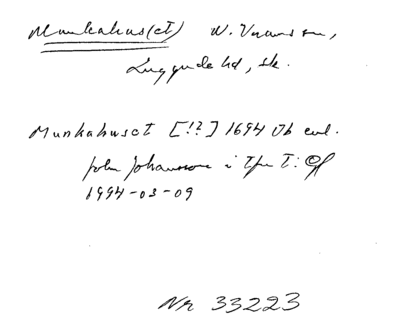 Munkahus(et) W. Vram sn,
Luggude hd, Sk.
Munkahuset [!?] 1694 Jb enl.
John Johansson i Tfn T:
1994-03-09
Nr 33223